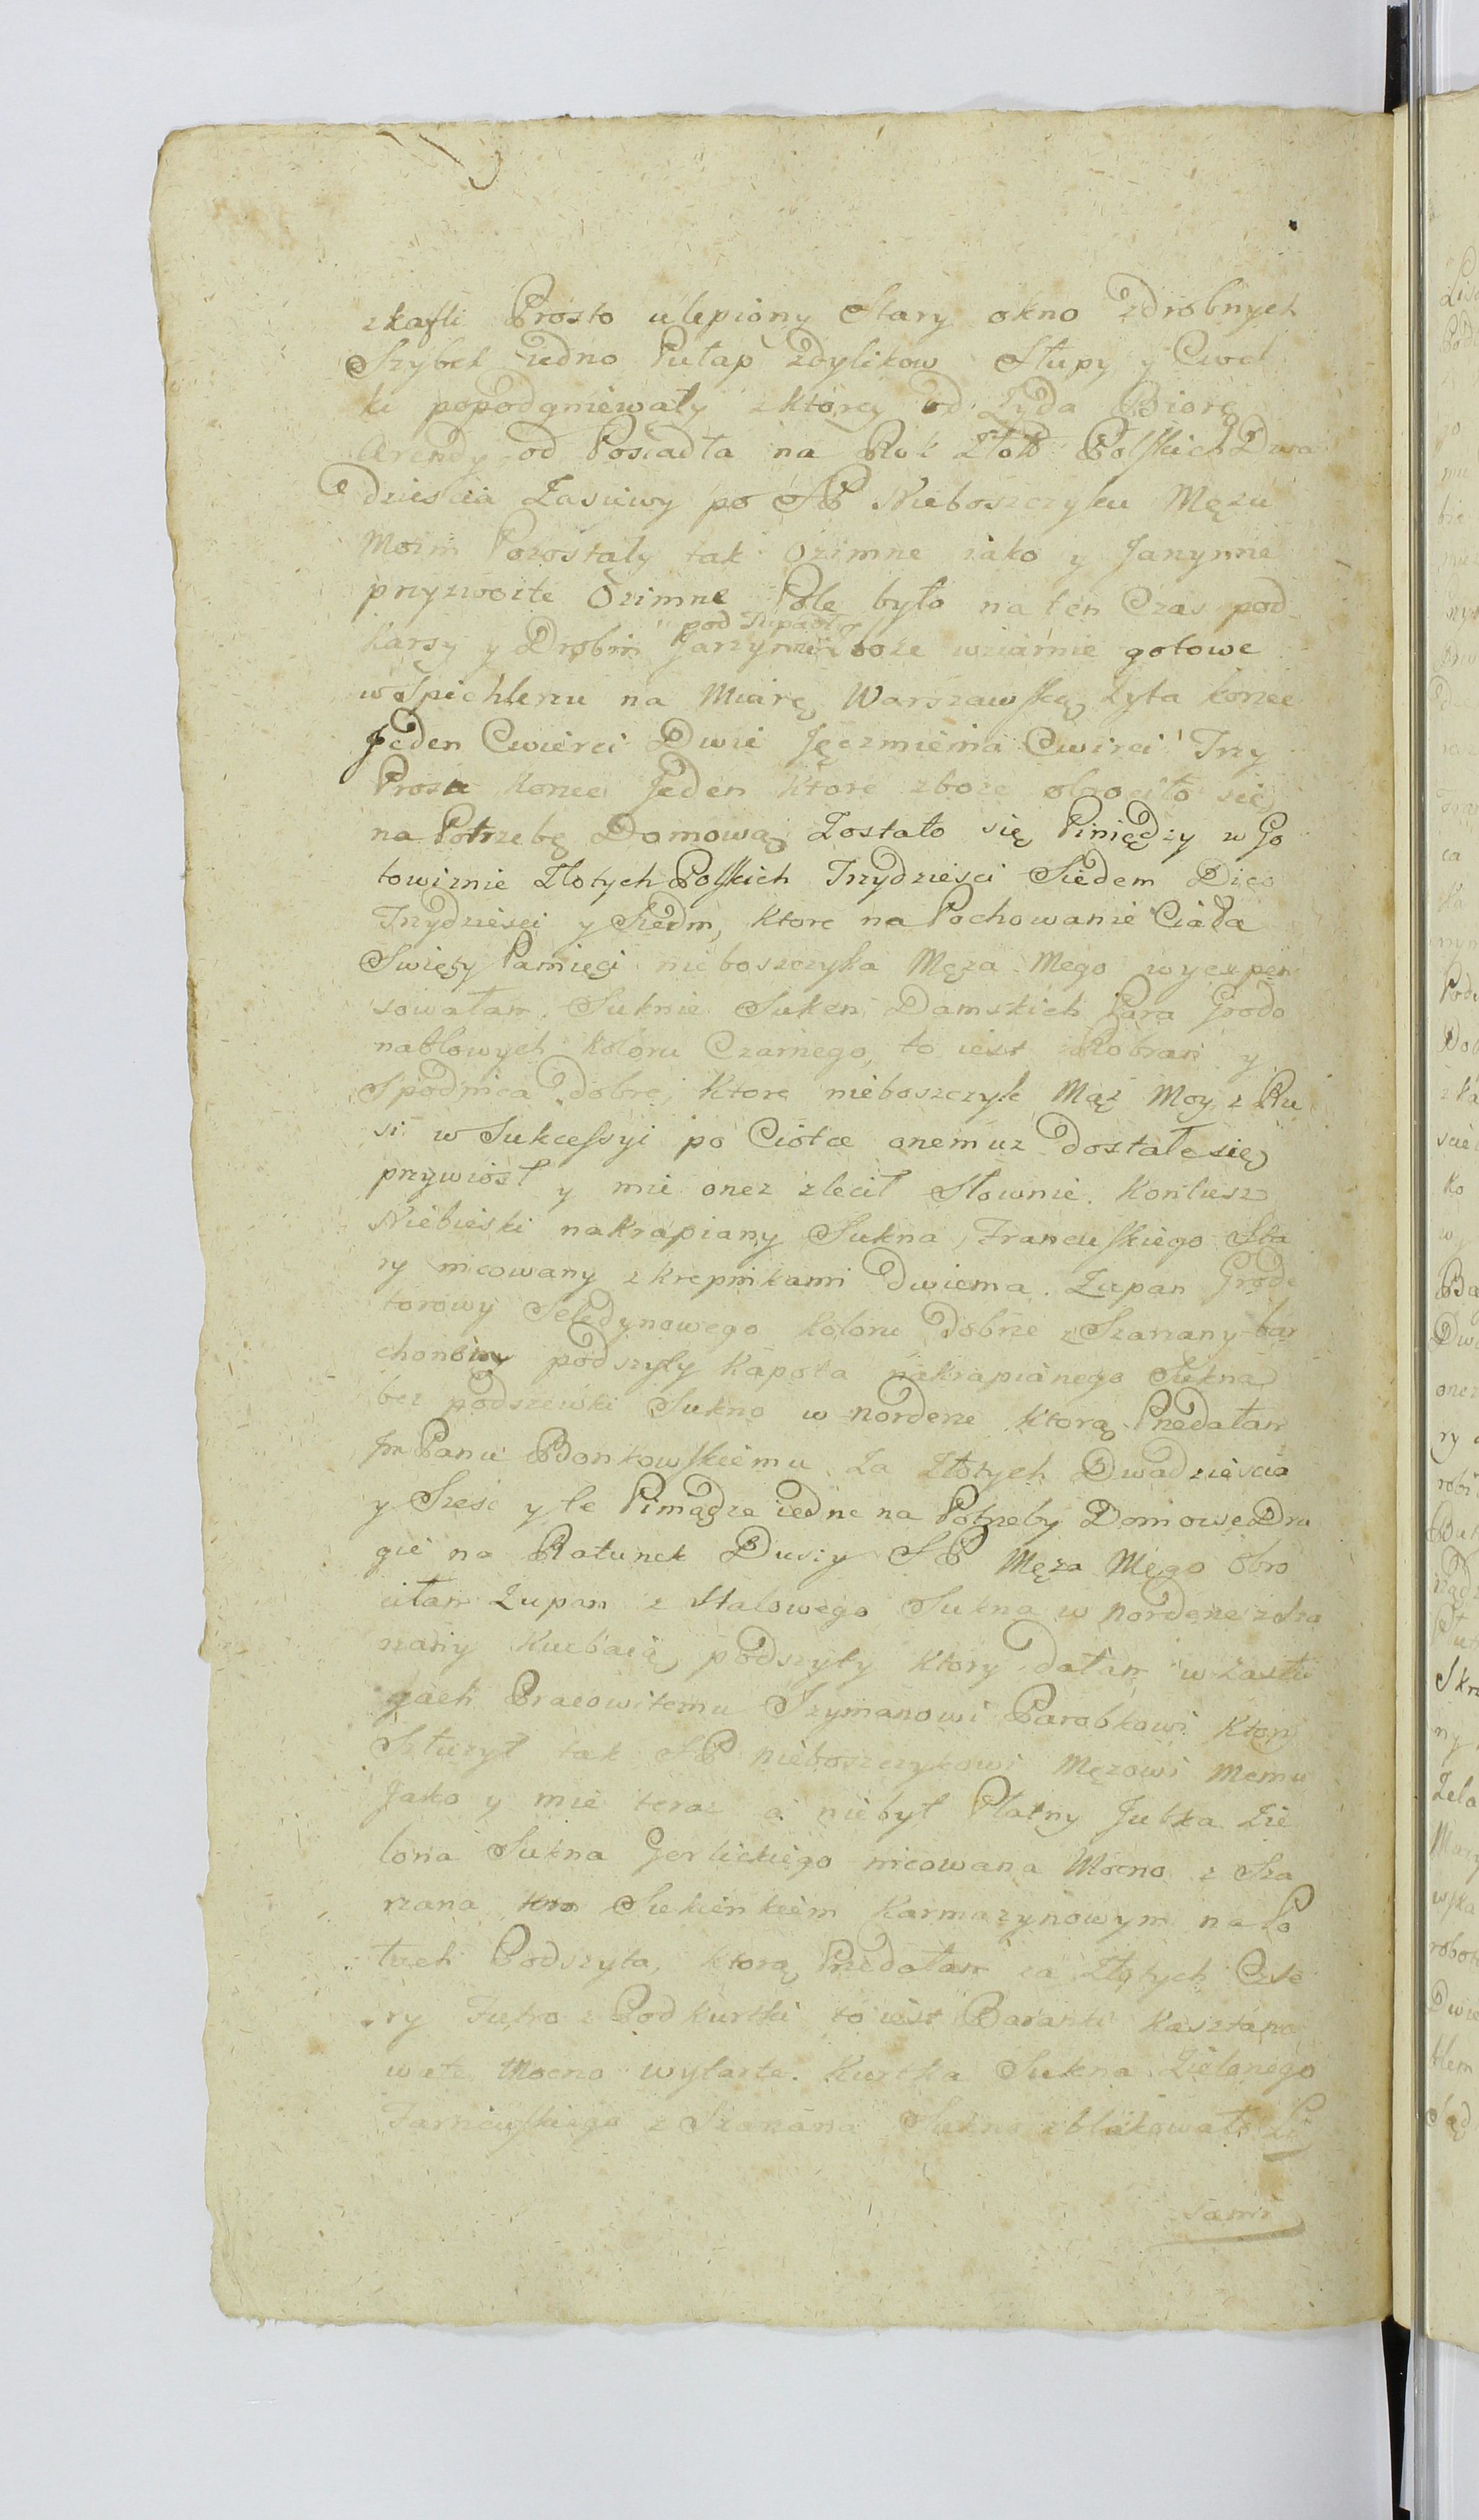 zkafli Prosto ulepiony Stary okno zdrobnych
Szybek iedno Pułap zdylikow Słupy y Cwel
ki popodgniewały zktorey od Zyda Biorę
Arendy od Posiadła na Rok Złoto Polskich Dwa
dziescia Zasiewy po SP Nieboszczyku Męzu
Moim Pozostały tak Ozimne iako y Jarzynne
przyzwoite Ozimne Pole było na ten Czas pod
karsy y Drobin Jarzynne boze wziarnie gotowe
wSpichlerzu na Miarę Warszawską zyta korzec
Jeden Cwierci Dwie Jęczmienia Cwirci Trzy
Prosa korzec Jeden ktore zboze obrociło się
na Potrzebę Domową Zostało się Piniędzy w Go
towiznie Złotych Polskich Trzydziesci Siedem Dico
Trzydziesci y Siedm, ktore na Pochowanie Ciała
Swięty Pamięci nieboszczyka Męza Mego wyexpen
sowałam. Suknie Sukeń Damskich Para Grodo
nablowych koloru Czarnego, to iest Robran y
Spodnica dobre, ktore nieboszczyk Mąż Moy z Ru
si w Sukcessyi po Ciotce onemuz dostałe się
przywiosł y mie onez zlecił Słownie. Kontusz
Niebieski nakrapiany Sukna Francuskiego Sta
ry nicowany zkrepinkami dwiema. Zupan Grode
torowy Seledynowego koloru dobrze zSzarzany bar
chonowy podszyty Kapota nakrapianego Sukna
bez podszewki Sukno w nordene ktorą Przedałam
Jm Panu Bonkowskiemu za Złotych Dwadziescia
y Szesc y te Piniądze iedne na Potrzeby Domowe Dru
gie na Ratunek Duszy SP Męza Mego obro
ciłam Zupan z Stalowego Sukna w nordene zSza
rzany Kuczbaią podszyty ktory dałam w zasłu
gach Pracowitemu Szymanowi Parobkowi ktory
Szłuzył tak SP nieboszczykowi Męzowi Memu
Jako y mie teraz a niebył Płatny Jubka Zie
lona Sukna Gerlickiego nicowana Mocno z Sza
rzana Sukienkiem karmazynowym na Po
łuch Podszyta, ktorą Przedałam za Złotych Czte
ry Futro z Podkurtki to iest Baranki kasztano
wate Mocno wytarte. Kurtka Sukna Zielonego
z Szarzana Sukno zblakowało
sami